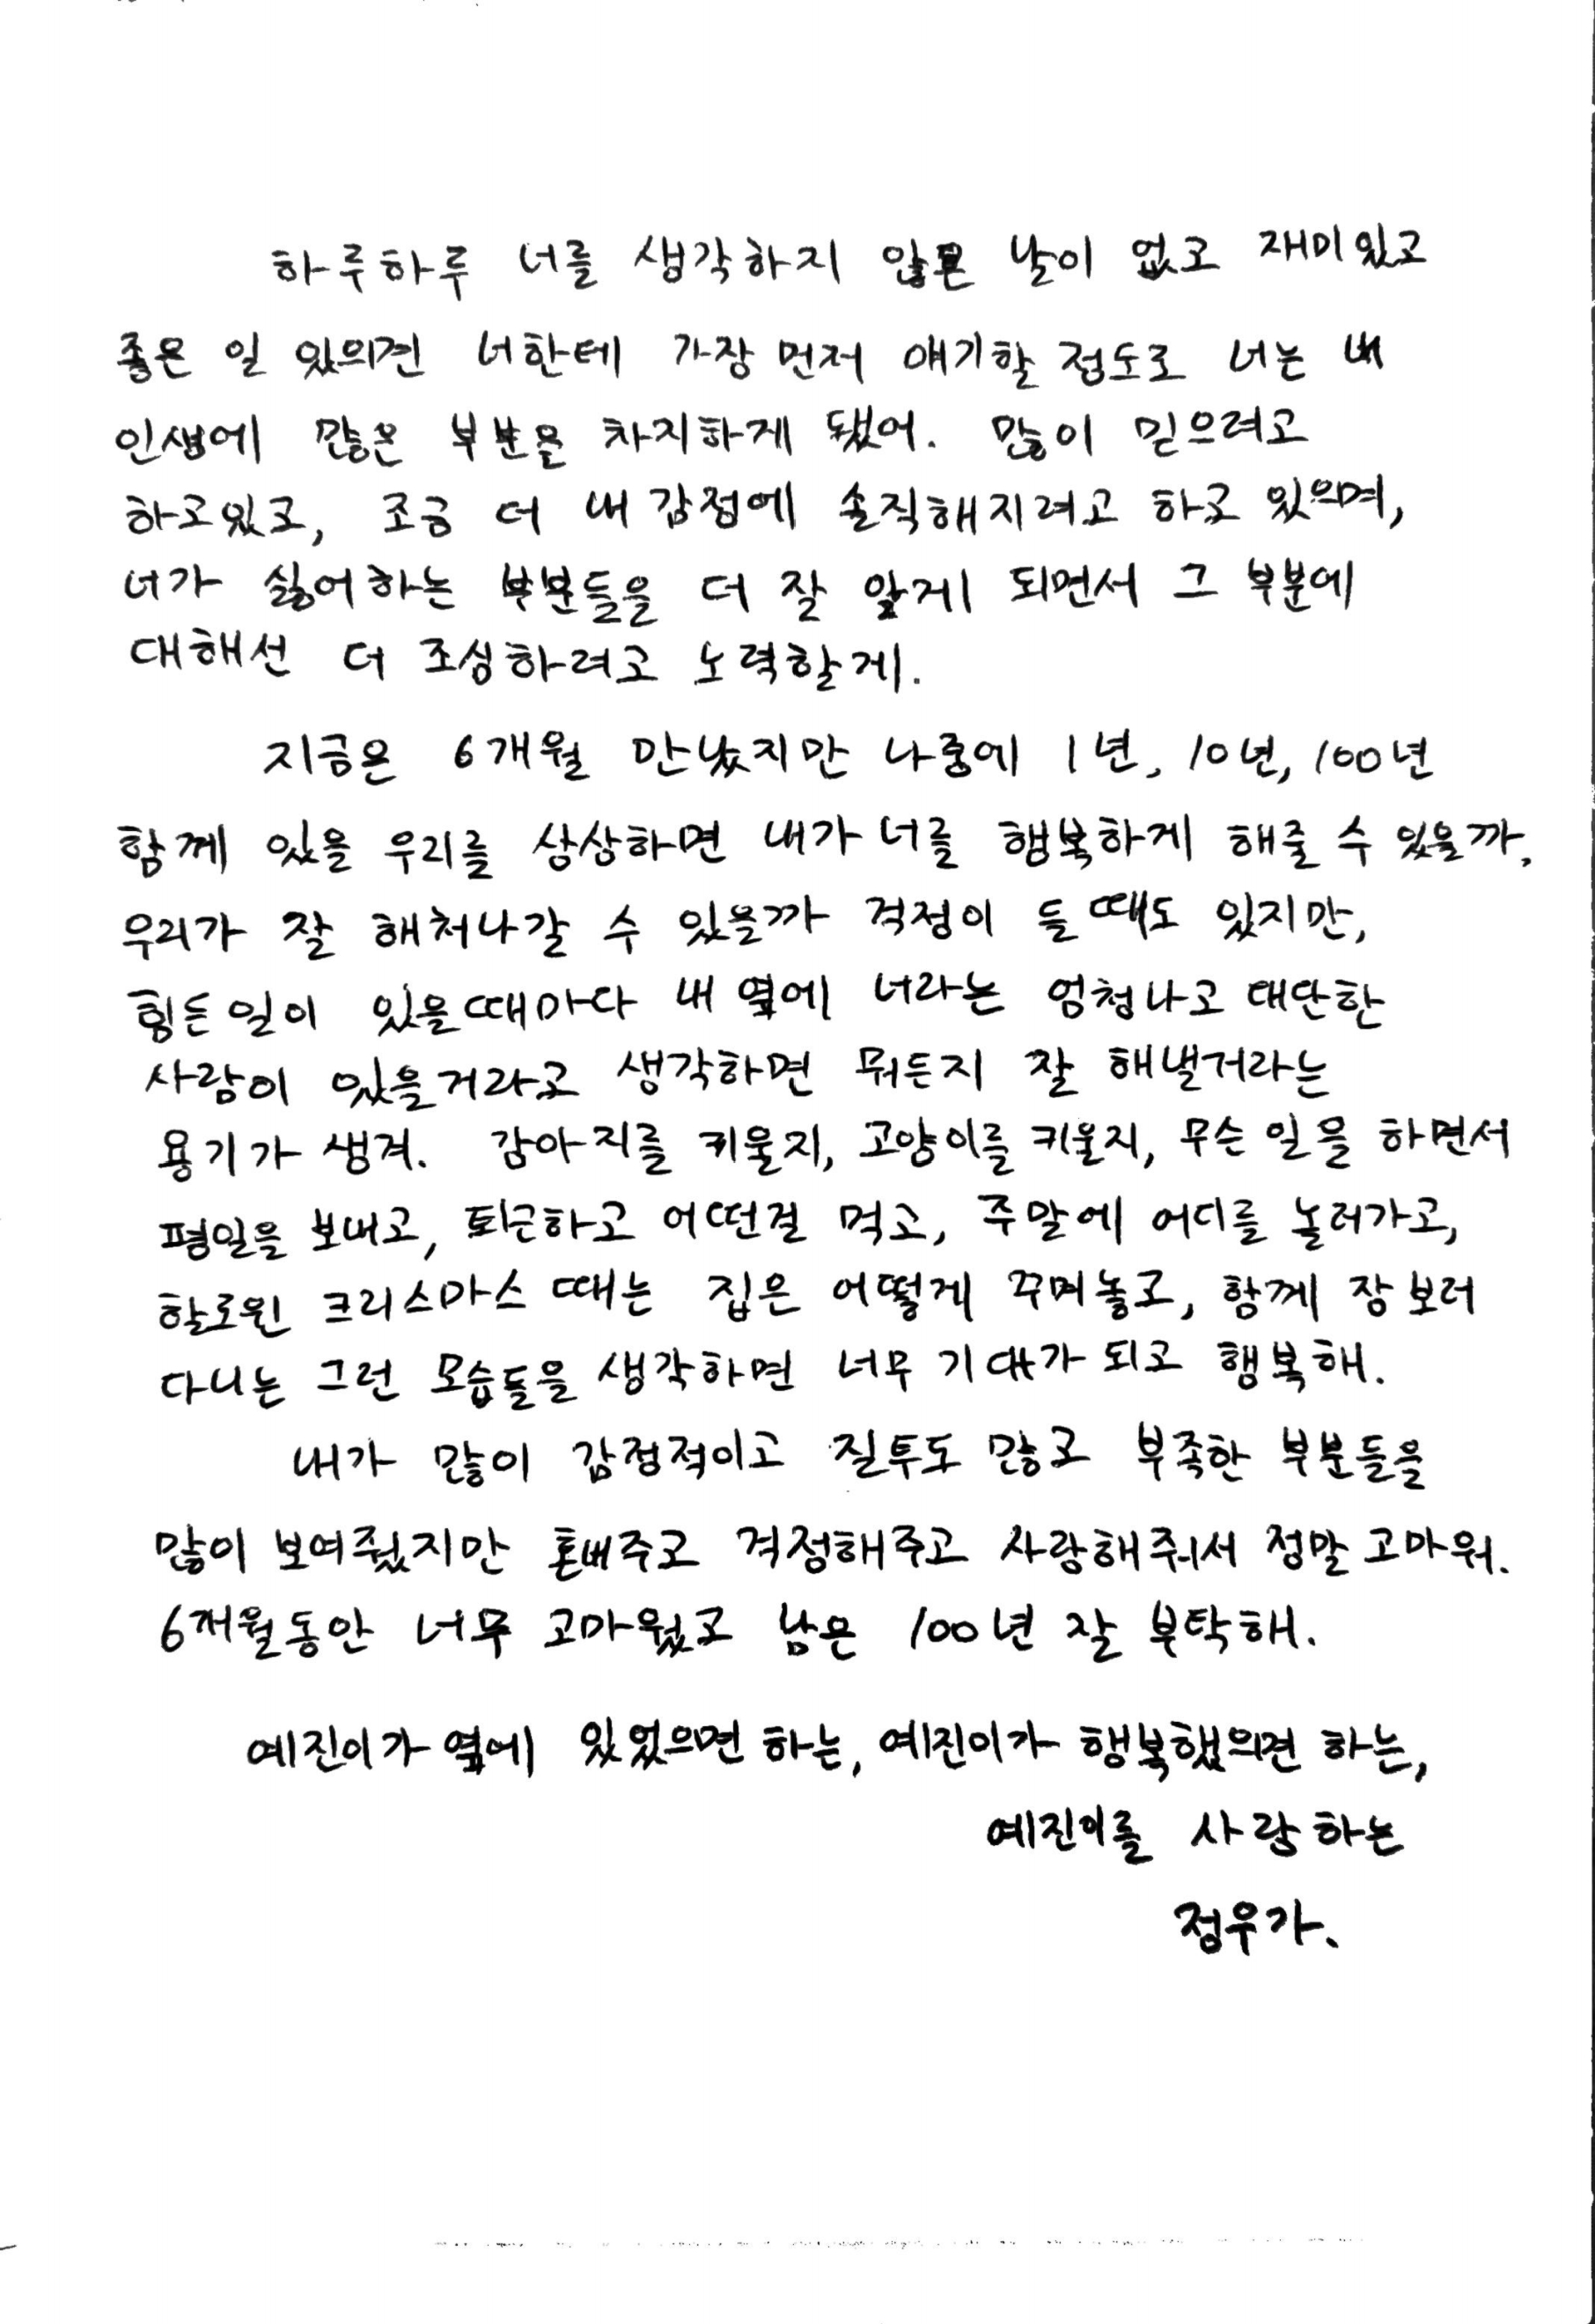 하루하루 너를 생각하지 않은 날이 없고 재미있고
좋은 일 있으면 너한테 가장 먼저 얘기할 정도로 너는 내
인생에 많은 부분을 차지하게 됐어. 많이 믿으려고
하고있고, 조금 더 내 감정에 솔직해지려고 하고 있으며,
너가 싫어하는 부분들을 더 잘 알게 되면서 그 부분에
대해선 더 조심하려고 노력할게.
지금은 6개월 만났지만 나중에 1년, 10년, 100년
함께 있을 우리를 상상하면 내가 너를 행복하게 해줄 수 있을까,
우리가 잘 해쳐나갈 수 있을까 걱정이 들 때도 있지만,
힘든일이 있을때마다 내 옆에 너라는 엄청나고 대단한
사람이 있을거라고 생각하면 뭐든지 잘 해낼거라는
용기가 생겨. 강아지를 키울지, 고양이를 키울지, 무슨 일을 하면서
평일을 보내고, 퇴근하고 어떤걸 먹고, 주말에 어디를 놀러가고,
할로윈 크리스마스 때는 집은 어떻게 꾸며놓고, 함께 장보러
다니는 그런 모습들을 생각하면 너무 기대가 되고 행복해.
내가 많이 감정적이고 질투도 많고 부족한 부분들을
많이 보여줬지만 혼내주고 걱정해주고 사랑해줘서 정말 고마워.
6개월동안 너무 고마웠고 남은 100년 잘 부탁해.
예진이가 옆에 있었으면 하는, 예진이가 행복했으면 하는,
예진이를 사랑하는
정우가.